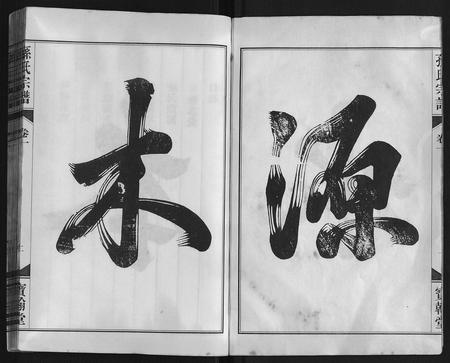 源
木
孫氏宗譜
卷一
寶翰堂
孫氏宗譜
卷一
寶翰堂